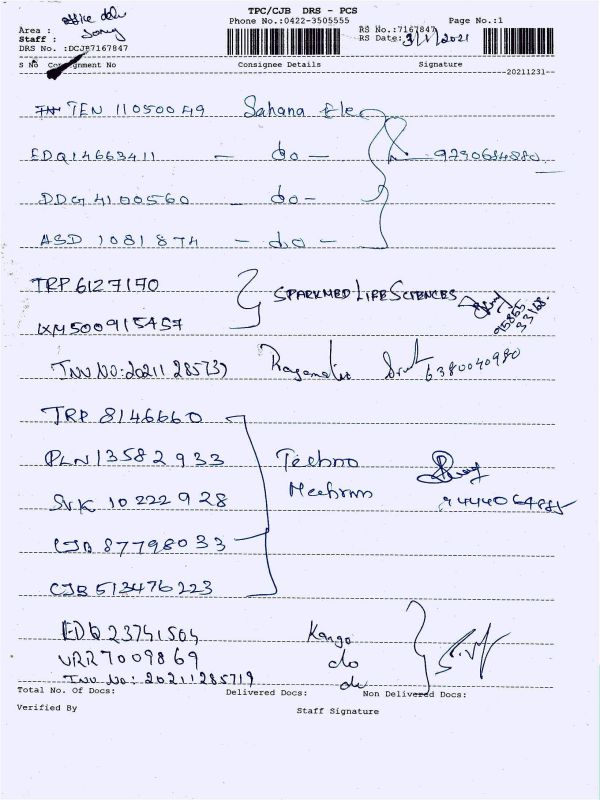 TPC/CJB DRS - PCS
Phone No.:0422-3505555 Page No.:1
office del
Area :
Staff :
RS No.:7167847
DRS No. :DCJB7167847
RS Date: 3/1/2021
S No Consignment No Consignee Details Signature
20211231
TEN 110500549 Sahana Ele
EDQ14663411 - do - 9790684880
DDG 4100560 - do -
ASD 1081874 - do -
TRP 6127170
SPARKMED LIFE SCIENCES
95855
33168
IXM500915457
INV NO: 20211285739 6380040980
TRP 8146660
PLN13582933 Techno
SVK 10222928
CJB 87798033
CJB 513476223
EDQ 23741504 Kango
VRR7009869 do
INV No: 20211285719 do
Total No. Of Docs: Delivered Docs: Non Delivered Docs:
Verified By Staff Signature